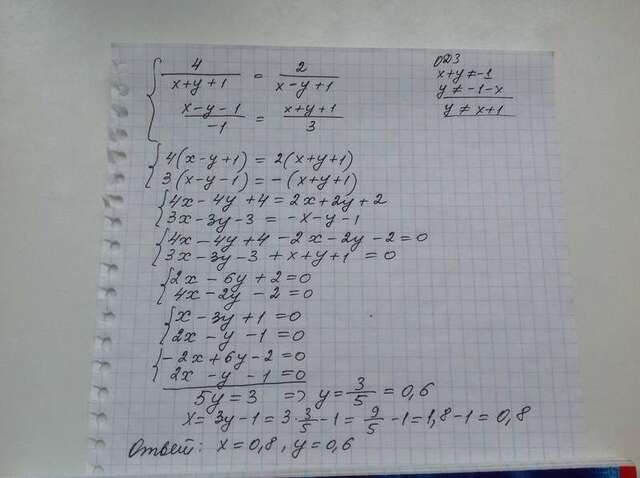 { 4/(x+y+1) = 2/(x-y+1)
(x-y-1)/-1 = (x+y+1)/3
ОДЗ
x+y≠-1
y≠-1-x
y≠x+1
{ 4(x-y+1) = 2(x+y+1)
3(x-y-1) = -(x+y+1)
{ 4x-4y+4 = 2x+2y+2
3x-3y-3 = -x-y-1
{ 4x-4y+4-2x-2y-2=0
3x-3y-3+x+y+1=0
{ 2x-6y+2=0
4x-2y-2=0
{ x-3y+1=0
2x-y-1=0
{ -2x+6y-2=0
2x-y-1=0
5y=3 => y=3/5=0,6
x=3y-1=3·3/5-1=9/5-1=1,8-1=0,8
Ответ: x=0,8, y=0,6